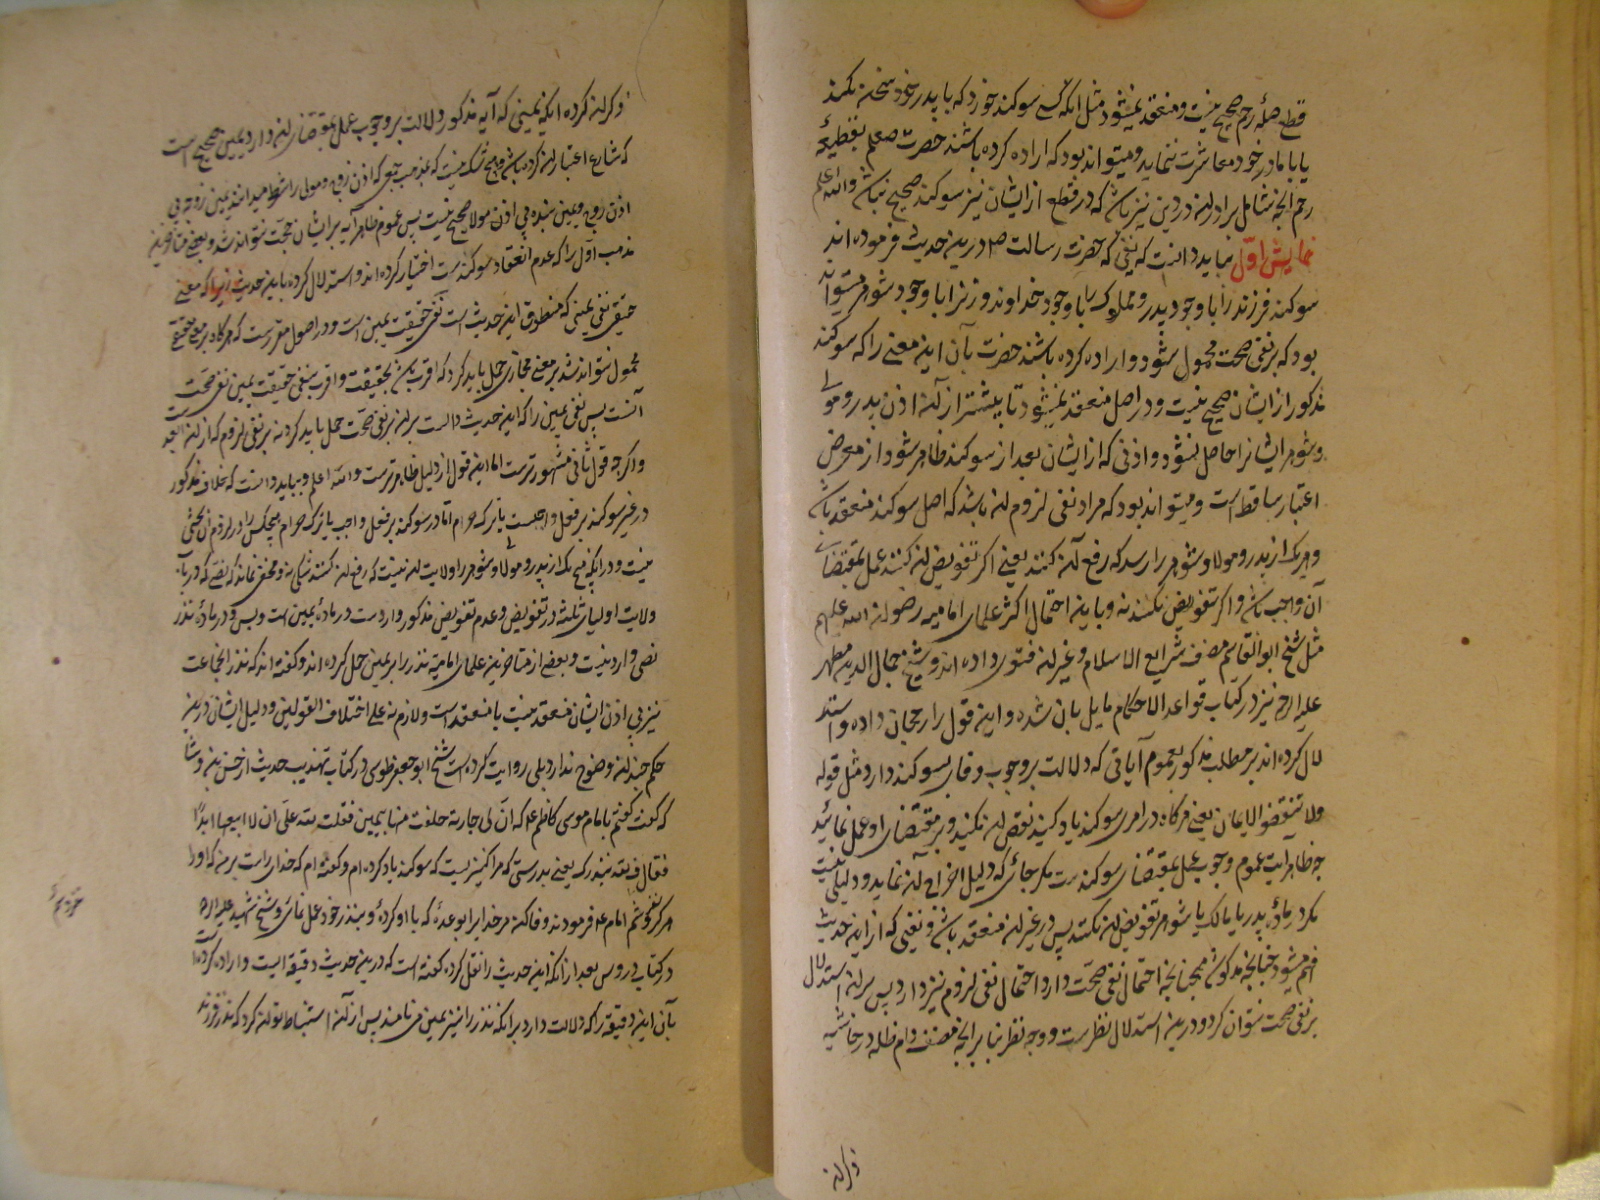 قطع صلهٔ رحم صحیح نیست و منعقد نمیشود مثل انکه کسی سوکند خورد که با پدر خود سخن نکند
یا با مادر خود معاشرت ننماید و میتواند بود که اراده کرده باشند حضرت صلعم بقطیعهٔ
رحم انچه شامل برادران دردین نیز باشد که در قطع از ایشان نیز سوکند صحیح نباشد والله اعلم
نمایش اوّل بباید دانست که نفیی که حضرت رسالت ص درین حدیث فرموده اند
سوکند فرزند را با وجود پدر و مملوک را با وجود خداوند و زنرا با وجود شوهر میتواند
بود که بر نفی صحت محمول شود و اراده کرده باشند حضرت بآن این معنی را که سوکند
مذکور از ایشان صحیح نیست و در اصل منعقد نمیشود تا پیشتر از آن اذن پدر و مولی
و شوهر ایشانرا حاصل نشود و اذنی که از ایشان بعد از سوکند ظاهر شود از معرض
اعتبار ساقط است و میتواند بود که مراد نفی لزوم ان باشد که اصل سوکند منعقد باشد
و هریک از پدر و مولا و شوهر را رسد که رفع آن کنند یعنی اکر تفویض ان کنند عمل بمقتضای
آن واجب باشد و اکر تفویض نکنند نه و باین احتمال اکثر علمای امامیه رضوان الله علیهم
مثل شیخ ابوالقاسم مصنف شرایع الاسلام و غیر ان فتوی داده اند و شیخ جمال الدین مطهر
علیه الرحمه نیز در کتاب قواعد الاحکام مایل بان شده و این قول را رجحان داده و استد
لال کرده اند بر مطلب مذکور بعموم آیاتی که دلالت بر وجوب وفای بسوکند دارد مثل قوله
ولا تنقضوا الایمان یعنی هرکاه در امری سوکند یاد کنید نقض ان نکنید و بر مقتضای او عمل نمائید
چه ظاهر ایت عموم وجوب عمل بمقتضای سوکندست مکر جائی که دلیل اخراج آن نماید و دلیلی نیست
مکر در مادهٔ پدر یا مالک یا شوهر تفویض ان نکنند پس در غیر ان منعقد باشد و نفیی که از این حدیث
فهم میشود چنانچه مذکور شد همچنانچه احتمال نفی صحت دارد احتمال نفی لزوم نیز دارد پس بران استدلال
بر نفی صحت نتوان کرد و درین استدلال نظرست و وجه نظر بنا بر انچه مصنف دام ظله در حاشیه
ذکر ان
ذکر ان کرده انکه یمینی که آیه مذکور دلالت بر وجوب عمل بمقتضای ان دارد یمین صحیح است
که شارع اعتبار ان کرده باشد و هیچ شک نیست که بمذهب جمعی که اذن زوج و مولی را شرط میدانند یمین زوجه بی
اذن زوج و یمین بنده بی اذن مولا صحیح نیست پس عموم ظاهر آیه بر ایشان حجت نتواند شد و بعضی متأخرین
مذهب اول را که عدم انعقاد سوکندست اختیار کرده اند و استدلال کرده باین حدیث که معنی
حقیقی نفی یمینی که منطوق این حدیث است نفی حقیقت یمین است و در اصول مقررست که هرکاه بر معنی حقیقی
محمول نتواند شد بر معنی مجازی حمل باید کرد که اقرب باشد بحقیقت و اقرب بنفی حقیقت یمین نفی صحت
آنست پس نفی یمین را که این حدیث دالست بران بر نفی صحت حمل باید کرد نه بر نفی لزوم که از ان ابعدست
و اکرچه قول ثانی مشهورترست اما این قول از دلیل ظاهرترست والله اعلم و بباید دانست که خلاف مذکور
در غیر سوکند بر فعل واجبست یا ترک حرام اما در سوکند بر فعل واجب یا بر ترک حرام هیچکس را در لزوم ان بحثی
نیست و در انکه هیچ یک از پدر و مولا و شوهر را ولایت ان نیست که رفع ان کنند شکی نه و مخفی نماند که نصی که در باب
ولایت اولیای ثلثه در تفویض و عدم تفویض مذکور واردست در مادهٔ یمین است و بس و در مادهٔ نذر
نصی وارد نیست و بعضی از متاخرین علمای امامیه نذر را بر یمین حمل کرده اند و کفته اند که نذر انجماعت
نیز بی اذن ایشان منعقد نیست یا منعقد است و لازم نه علی اختلاف القولین و دلیل ایشان درین
حکم چندان وضوح ندارد بلی روایت کرده است شیخ ابوجعفر طوسی در کتاب تهذیب حدیث از حسن بن وشا
که کفت کفتم بامام موسی کاظم ع که انّ لی جاریة حلفت منها بیمین فقلت لله علیّ ان لا ابیعها ابدًا
فقال فِ لله بنذرک یعنی بدرستی که مرا کنیزکیست که سوکند یاد کرده ام و کفته ام که خدای راست بر من که او را
هرکز نفروشم امام ع فرمودند وفا کن مر خدایرا بوعدهٔ که با او کردهٔ و بنذر خود عمل نمای و شیخ شهید علیه الرحمه
در کتاب دروس بعد از انکه این حدیث را نقل کرده کفته است که درین حدیث دقیقه ایست و اراده کرده است
بآن این دقیقه را که دلالت دارد بر انکه نذر را نیز یمین می نامند پس از آن استنباط توان کرد که نذر فرزند